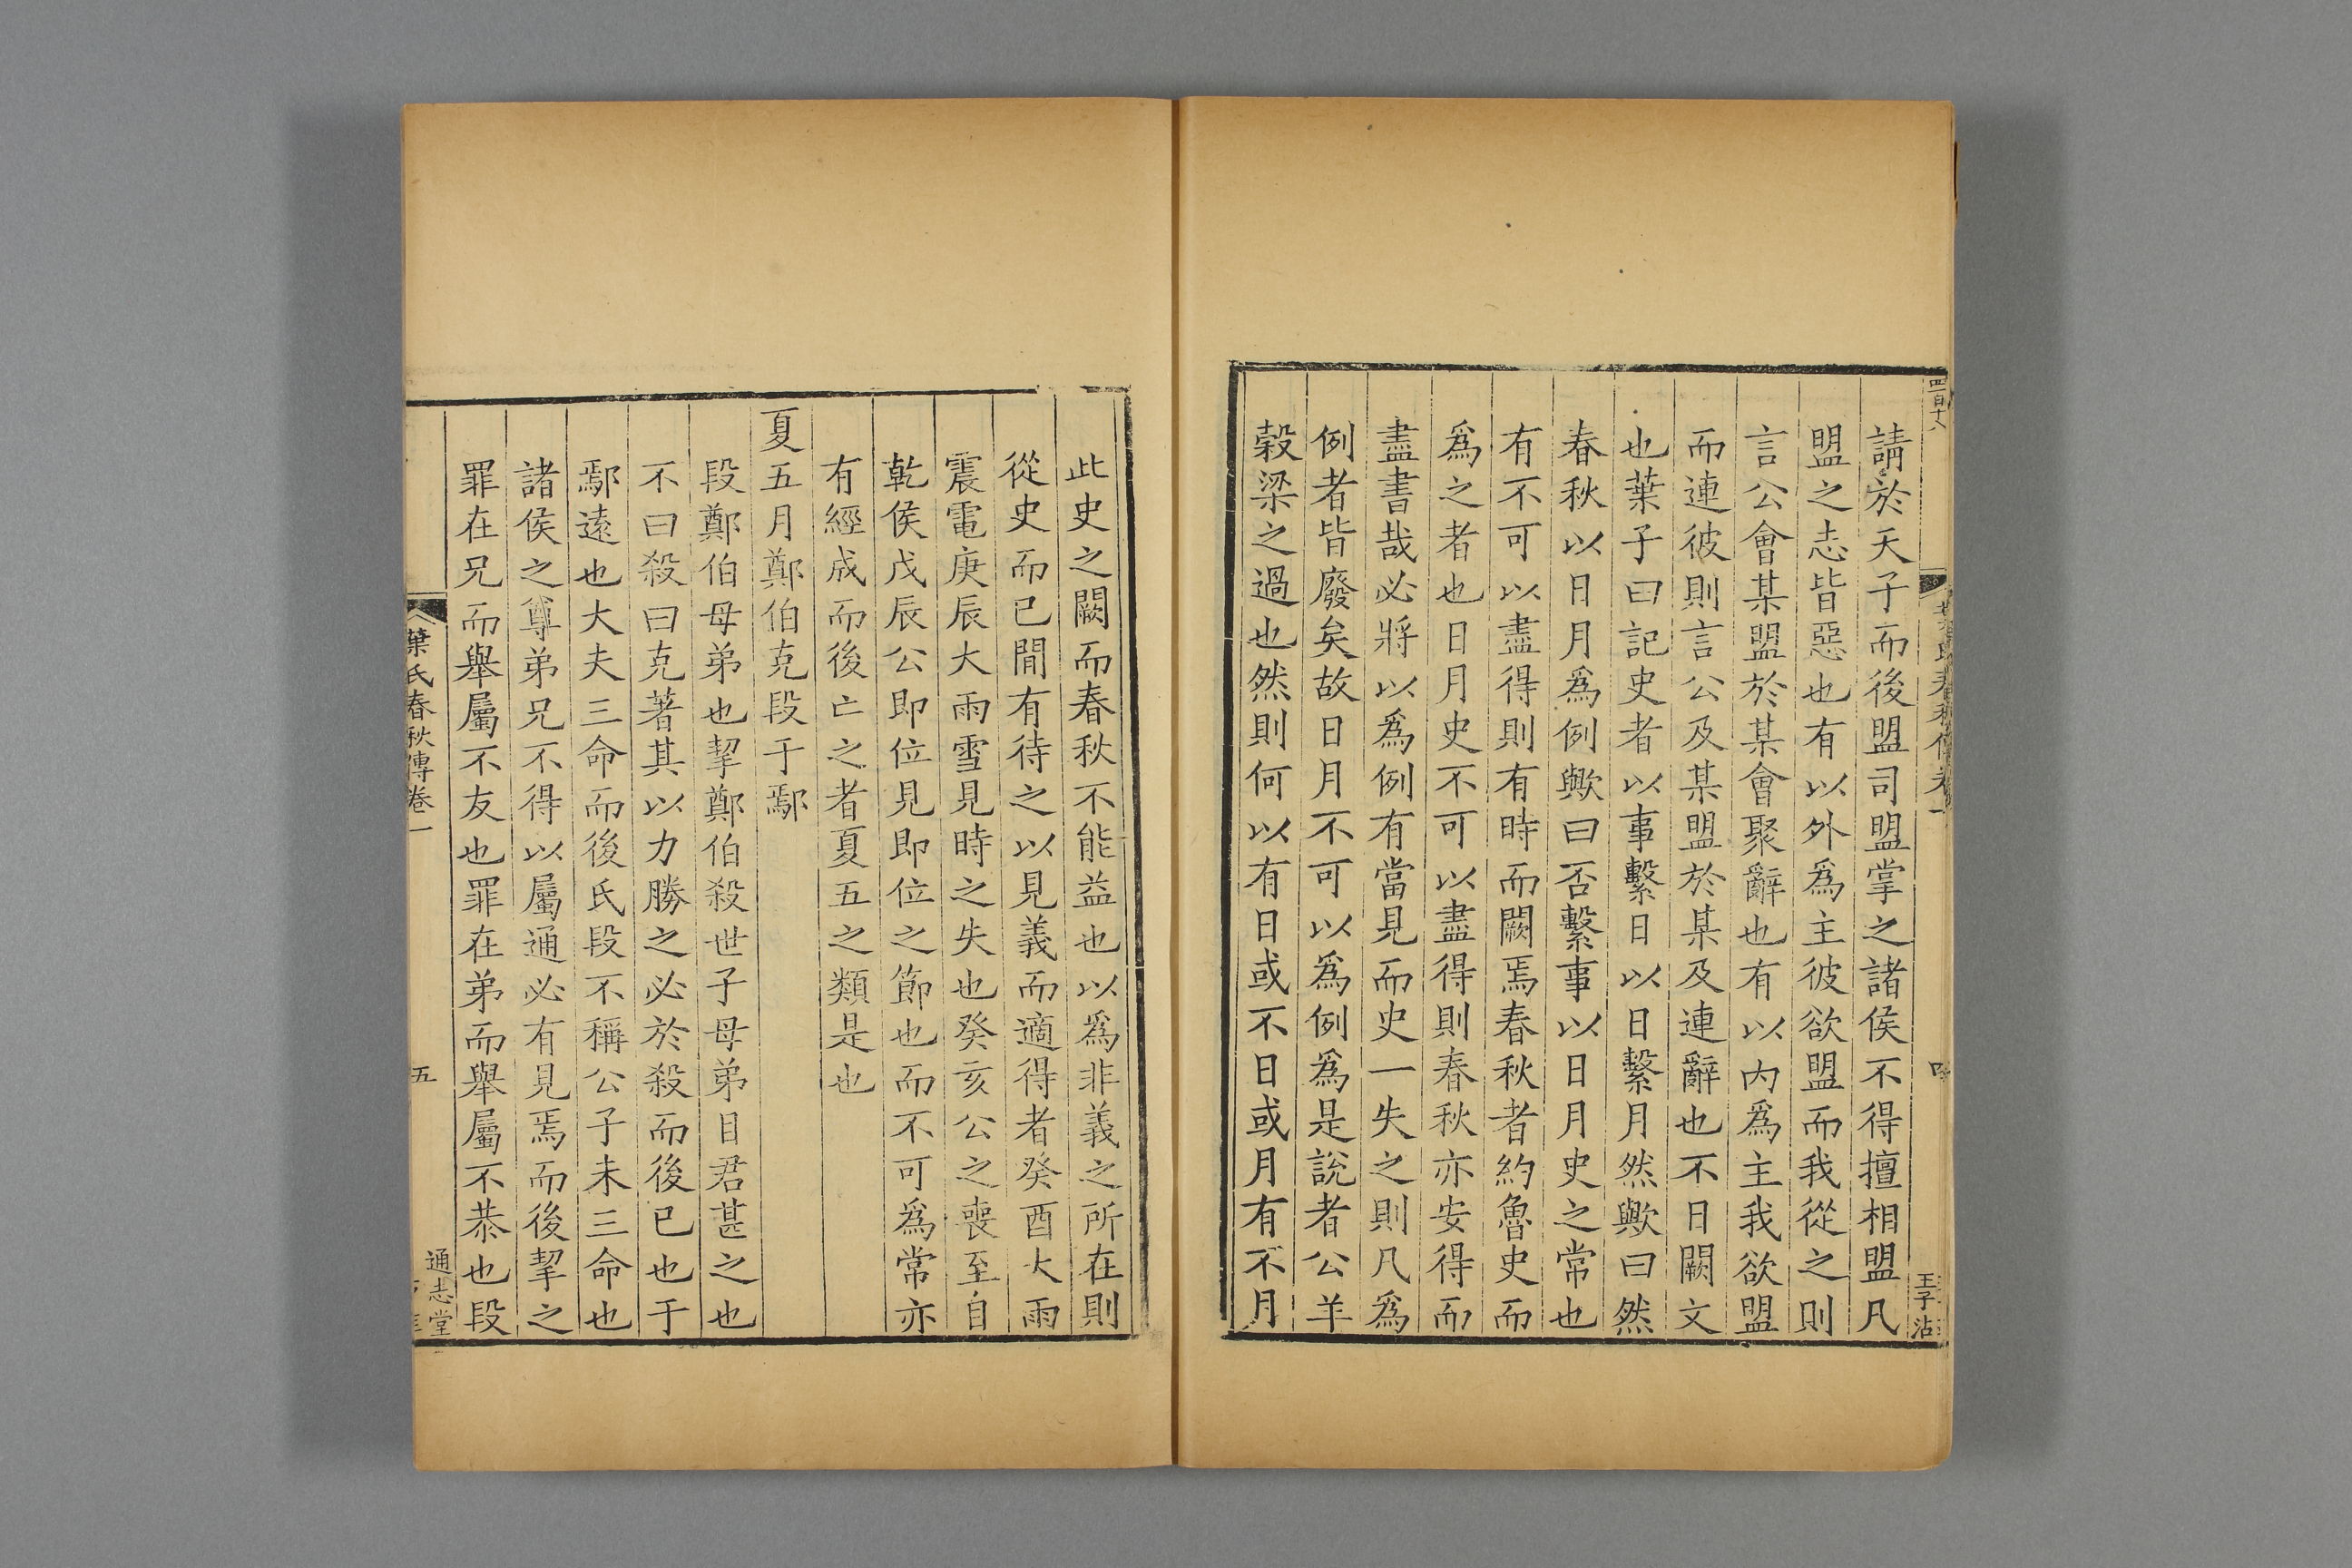 請於天子而後盟司盟掌之諸侯不得擅相盟凡
盟之志皆惡也有以外爲主彼欲盟而我從之則
言公會某盟於某會聚辭也有以内爲主我欲盟
而連彼則言公及某盟於某及連辭也不日闕文
也葉子曰記史者以事繫日以日繫月然歟曰然
春秋以日月爲例歟曰否繫事以日月史之常也
有不可以盡得則有時而闕焉春秋者約魯史而
爲之者也日月史不可以盡得則春秋亦安得而
盡書哉必將以爲例有當見而史一失之則凡爲
例者皆廢矣故日月不可以爲例爲是說者公羊
榖梁之過也然則何以有日或不日或月有不月
此史之闕而春秋不能益也以爲非義之所在則
從史而已閒有待之以見義而適得者癸酉大雨
震電庚辰大雨雪見時之失也癸亥公之喪至自
乾侯戊辰公即位見即位之節也而不可爲常亦
有經成而後亡之者夏五之類是也
夏五月鄭伯克段于鄢
段鄭伯母弟也挈鄭伯殺世子母弟目君甚之也
不曰殺曰克著其以力勝之必於殺而後已也于
鄢遠也大夫三命而後氏段不稱公子未三命也
諸侯之尊弟兄不得以屬通必有見焉而後挈之
罪在兄而舉屬不友也罪在弟而舉屬不恭也段
葉氏春秋傳卷一
五
通志堂